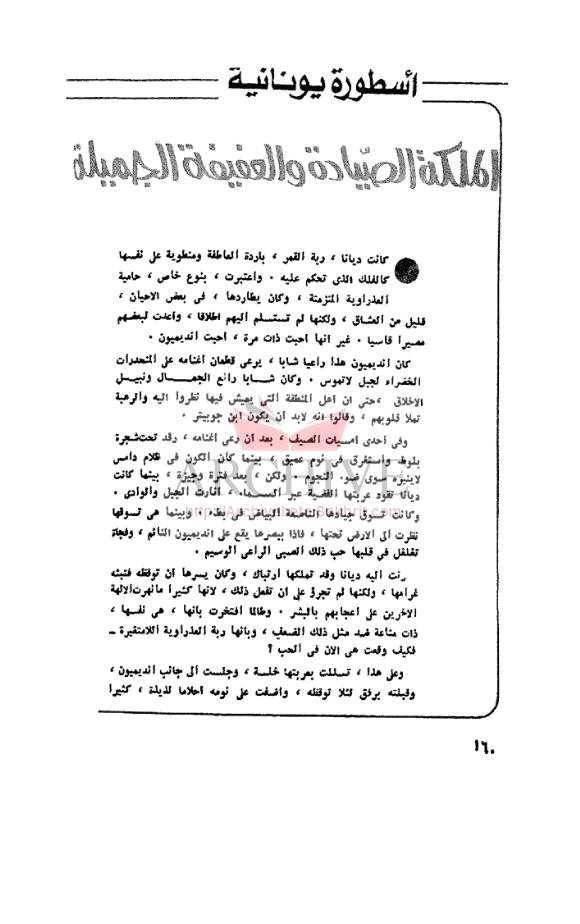 أسطورة يونانية
الملكة الصيّادة والعفيفة الجميلة
كانت ديانا ، ربة القمر ، باردة العاطفة ومنطوية على نفسها
كالفلك الذى تحكم عليه . واعتبرت ، بنوع خاص ، حامية
العذراوية المتزمتة ، وكان يطاردها ، فى بعض الاحيان ،
قليل من العشاق ، ولكنها لم تستسلم اليهم اطلاقا ، واعدت لبعضهم
مصيرا قاسيا . غير انها احبت ذات مرة ، احبت انديميون .
كان انديميون هذا راعيا شابا ، يرعى قطعان اغنامه على المنحدرات
الخضراء لجبل لاتموس . وكان شابا رائع الجمال ونبيل
الاخلاق ، حتى ان اهل المنطقة التى يعيش فيها نظروا اليه والرهبة
تملا قلوبهم ، وقالوا انه لابد ان يكون ابن جوبيتر .
وفى احدى امسيات الصيف ، بعد ان رعى اغنامه ، رقد تحت شجرة
بلوط واستغرق فى نوم عميق ، بينما كان الكون فى ظلام دامس
لاينيره سوى ضوء النجوم . ولكن ، بعد فترة وجيزة ، بينما كانت
ديانا تقود عربتها الفضية عبر السماء ، انارت الجبل والوادى .
وكانت تسوق جيادها الناصعة البياض فى بطء ، وبينما هى تسوقها
نظرت الى الارض تحتها ، فاذا ببصرها يقع على انديميون النائم ، وفجاة
تغلغل فى قلبها حب ذلك الصبى الراعى الوسيم .
رنت اليه ديانا وقد تملكها ارتباك ، وكان يسرها ان توقظه فتبثه
غرامها ، ولكنها لم تجرؤ على ان تفعل ذلك ، لانها كثيرا مانهرت الالهة
الاخرين على اعجابهم بالبشر . وطالما افتخرت بانها ، هى نفسها ،
ذات مناعة ضد مثل ذلك الضعف ، وبانها ربة العذراوية اللامتغيرة ــ
فكيف وقعت هى الان فى الحب ؟
وعلى هذا ، تسللت بعربتها خلسة ، وجلست الى جانب انديميون ،
وقبلته برفق لئلا توقظه ، واضفت على نومه احلاما لذيذة ، كثيرا
ARCHIVE
١٦٠